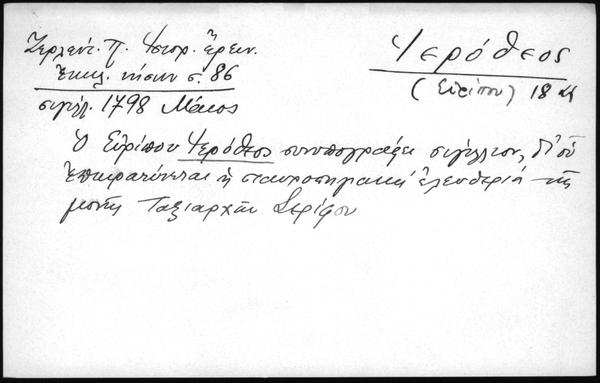 Ζερλέντ. Π. Ἱστορ. ἔρευν.
ἐκκλ. νήσων σ. 86
σιγίλ. 1798 Μάιος
Ἱερόθεος
(Εὐρίπου) 18
Ὁ Εὐρίπου Ἱερόθεος συνυπογράφει σιγίλλιον, δι' οὗ
ἐπικρατύνεται ἡ σταυροπηγιακή ἐλευθερία τῆς
μονῆς Ταξιαρχῶν Σερίφου